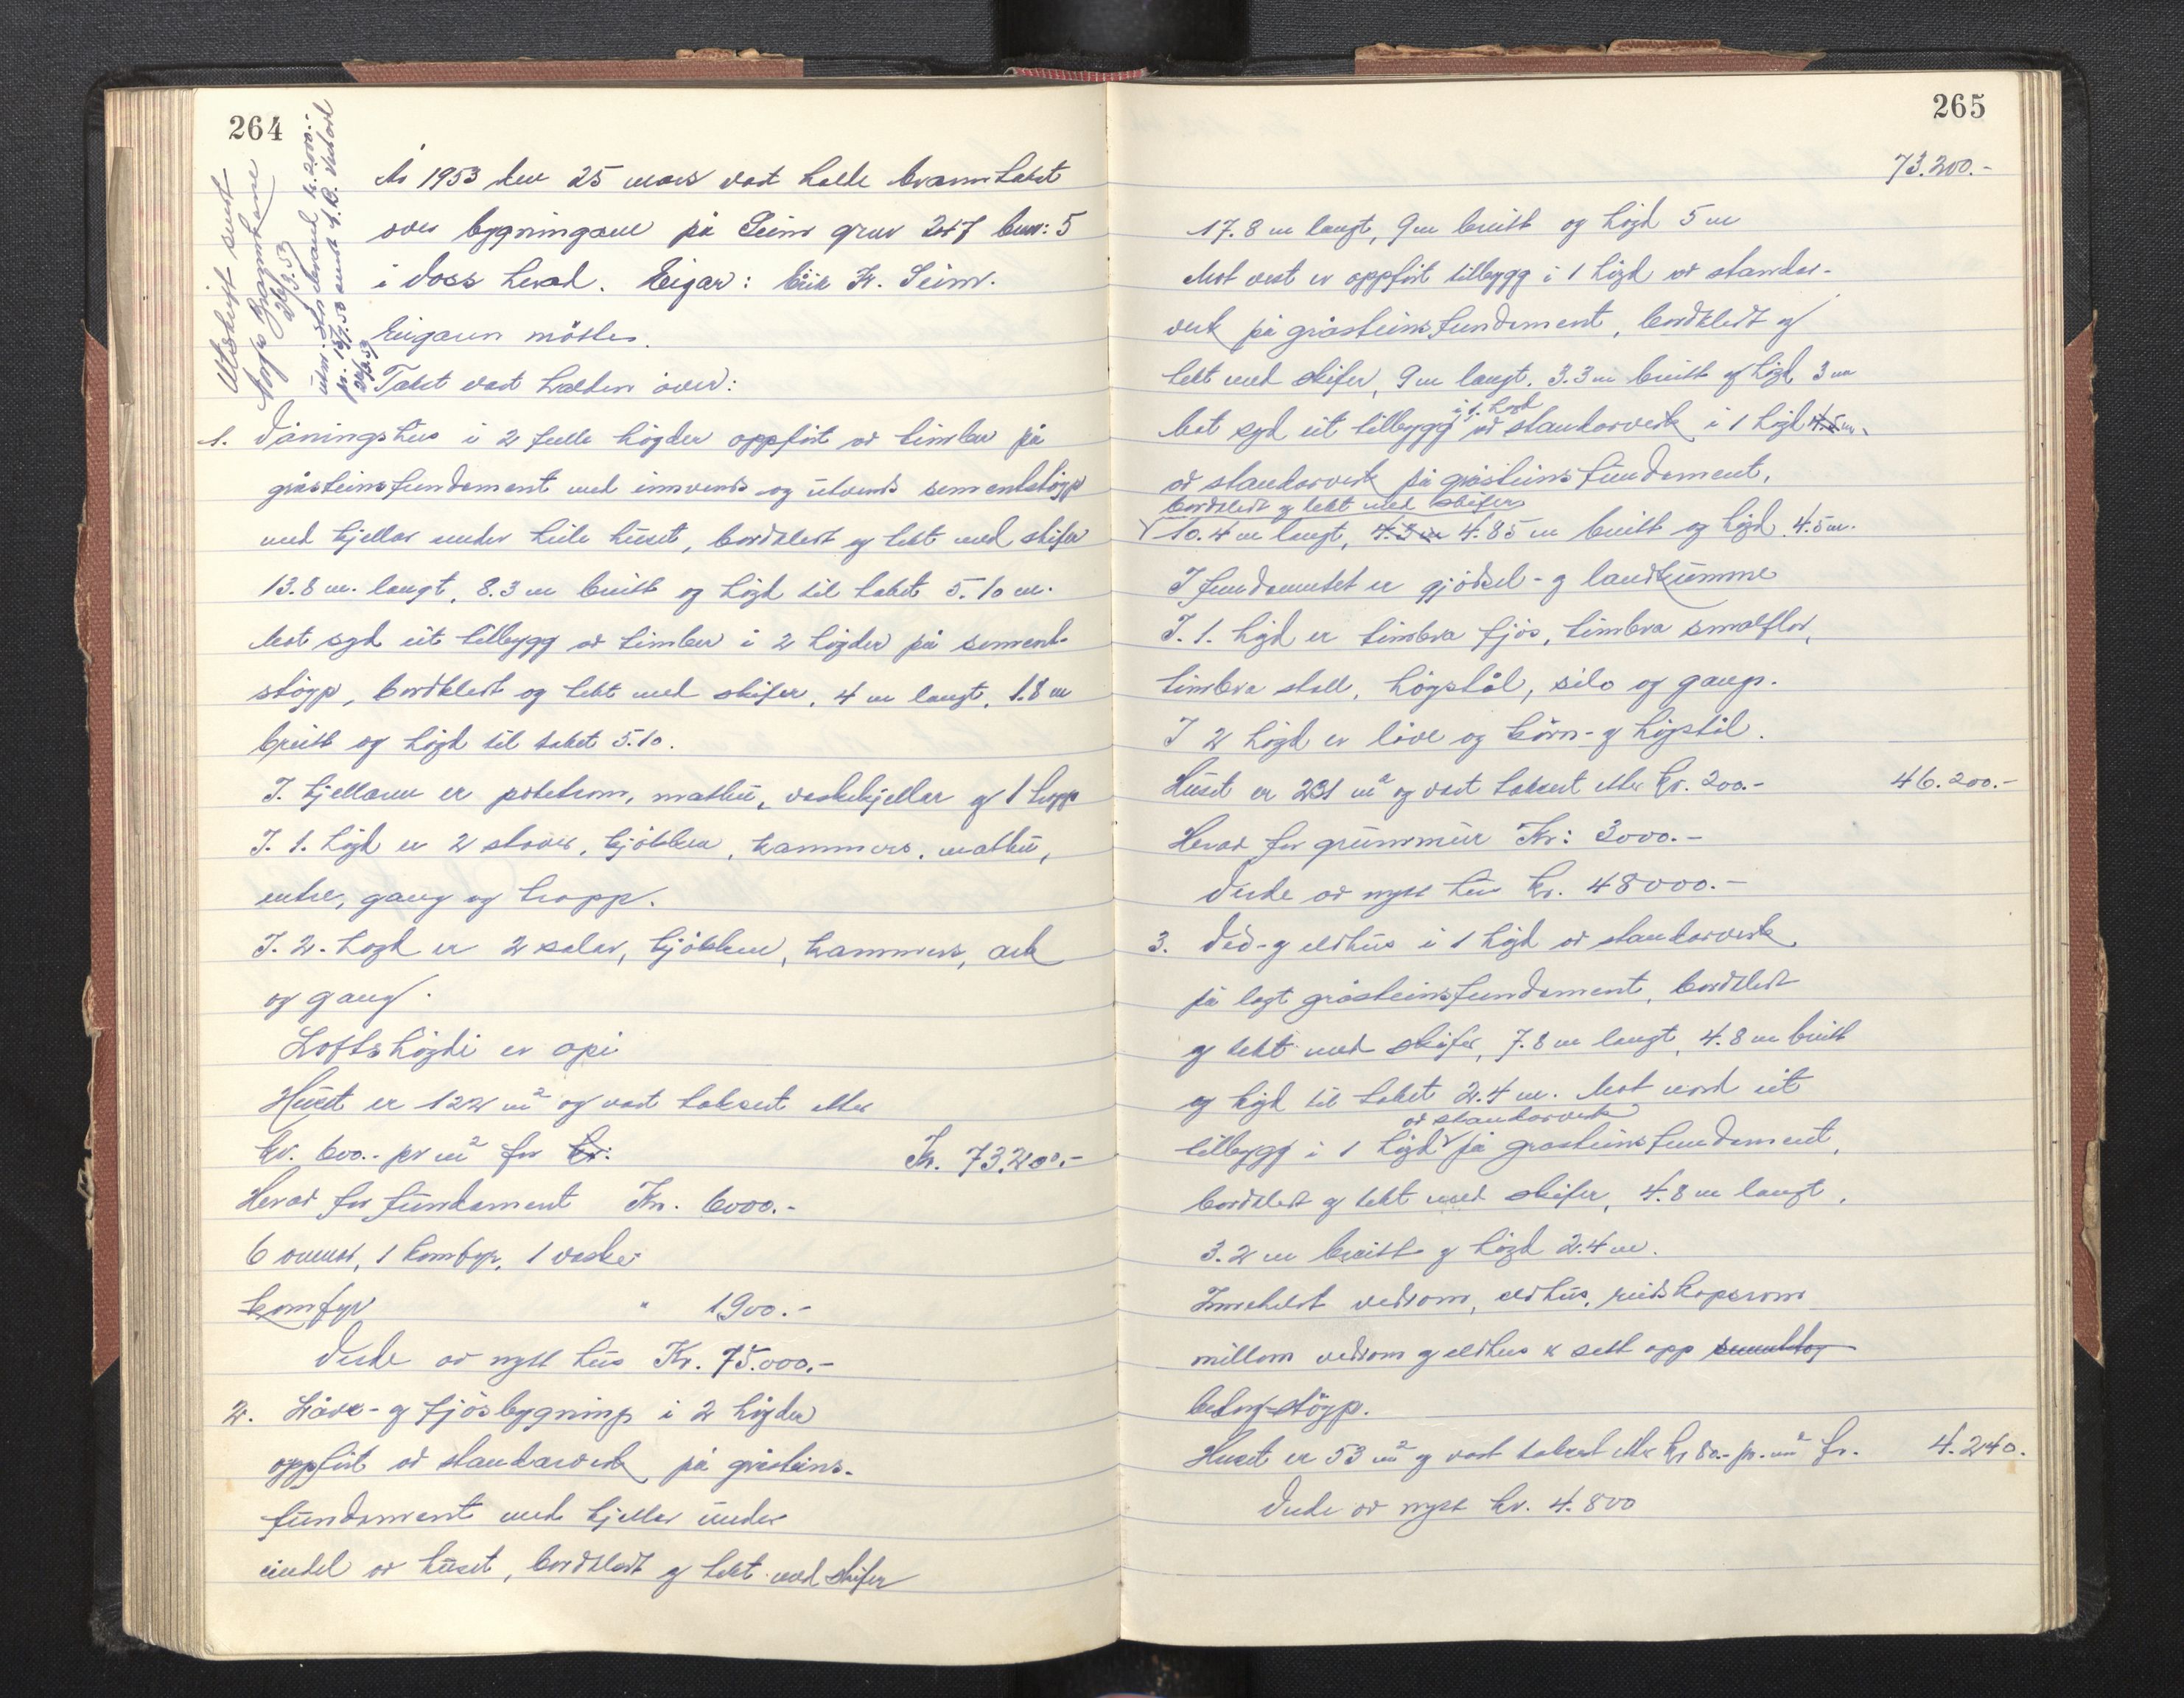 264
Utskrift sendt
Norges Brannkasse
26/3.53
År 1953 den 25 mars vart halde branntakst
over bygningane på Seim gnr 247 bnr: 5
i Voss herad. Eigar: Eirik K. Seim.
Eigaren møtte.
Takst vart halden over:
1. Våningshus i 2 fulle högder oppfört av timber på
gråsteinsfundament med innvendig og utvendig sementstöyp
med kjellar under heile huset, bordkledt og tekt med skifer
13.8 m. langt, 8.3 m breitt og högd til taket 5.10 m.
Mot syd eit tilbygg av timber i 2 högder på sement-
stöyp, bordkledt og tekt med skifer, 4 m langt, 1.8 m
breitt og högd til taket 5.10.
I. kjellaren er potetrom, matbu, vaskekjellar og 1 trapp
I. 1. högd er 2 stover, kjökken, kammers, matbu,
entre, gang og trapp.
I. 2. högd er 2 salar, kjökken, kammers, ark
og gang.
Loftshögdi er opi
Huset er 122 m² og vart taksert etter
kr. 600.- pr m² for kr: Kr. 73.200.-
Herav for fundament Kr. 6000.-
6 omnar, 1 komfyr, 1 vaske-
komfyr " 1900.-
Verde av nytt hus Kr. 75.000.-
2. Låve- og fjösbygning i 2 högder
oppfört av standarverk på gråsteins-
fundament med kjellar under
eindel av huset, bordkledt og tekt med skifer
265
73.200.-
17.8 m langt, 9 m breitt og högd 5 m
Mot vest er oppfört tilbygg i 1 högd av standar-
verk på gråsteinsfundament, bordkledt og
tekt med skifer, 9 m langt. 3.3 m breitt og högd 3 m
i 1. högd
Mot syd eit tilbygg av standarverk i 1 högd 4.5 m.
av standarverk på gråsteinsfundament,
bordkledt og tekt med skifer
10.4 m langt, 4.3 m 4.85 m breitt og högd 4.5 m.
I fundamentet er gjödsel- og landkumme
I. 1. högd er timbra fjös, timbra smalflor,
timbra stall, högstål, silo og gang.
I 2 högd er låve og korn- og högstål.
Huset er 231 m² og vart taksert etter kr. 200.- 46.200.-
Herav for grunnmur Kr: 3000.-
Verde av nytt hus kr. 48000.-
3. Ved- og eldhus i 1 högd av standarverk
på lagt gråsteinsfundament, bordkledt
og tekt med skifer, 7.8 m langt, 4.8 m breitt
og högd til taket 2.4 m. Mot nord eit
av standarverk
tilbygg i 1 högd på gråsteinsfundament,
bordkledt og tekt med skifer, 4.8 m langt,
3.2 m breitt og högd 2.4 m.
Inneheld vedrom, eldhus, reidskapsrom
millom vedrom og eldhus er sett opp
betong-stöyp.
Huset er 53 m² og vart taksert etter kr 80.- pr. m² fr. 4.240.
Verde av nytt kr. 4.800